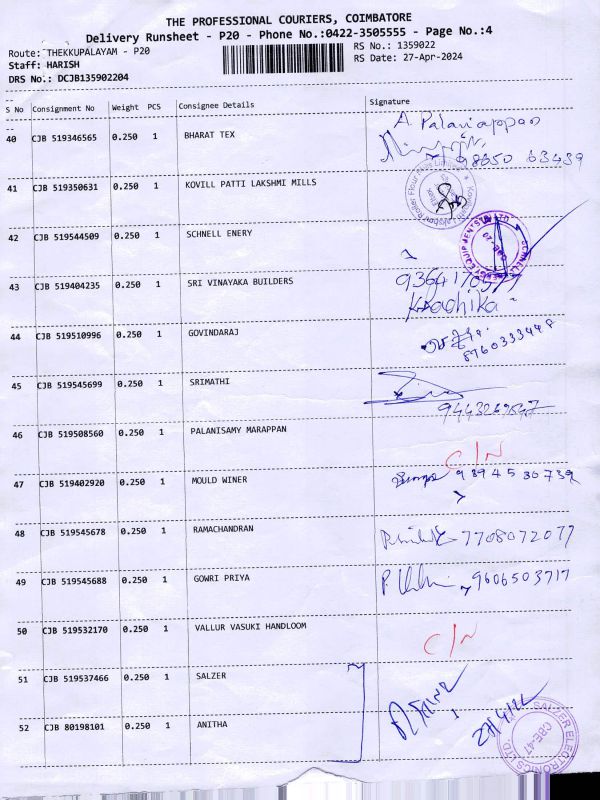 THE PROFESSIONAL COURIERS, COIMBATORE
Delivery Runsheet - P20 - Phone No.:0422-3505555 - Page No.:4
Route: THEKKUPALAYAM - P20
RS No.: 1359022
Staff: HARISH
RS Date: 27-Apr-2024
DRS No.: DCJB135902204
S No Consignment No Weight PCS Consignee Details Signature
40 CJB 519346565 0.250 1 BHARAT TEX A. Palaniappan
98650 63439
41 CJB 519350631 0.250 1 KOVILL PATTI LAKSHMI MILLS
42 CJB 519544509 0.250 1 SCHNELL ENERY
43 CJB 519404235 0.250 1 SRI VINAYAKA BUILDERS
44 CJB 519510996 0.250 1 GOVINDARAJ
8760333448
45 CJB 519545699 0.250 1 SRIMATHI
46 CJB 519508560 0.250 1 PALANISAMY MARAPPAN
C/N
47 CJB 519402920 0.250 1 MOULD WINER 9894530739
48 CJB 519545678 0.250 1 RAMACHANDRAN 7708072077
49 CJB 519545688 0.250 1 GOWRI PRIYA 9606503717
50 CJB 519532170 0.250 1 VALLUR VASUKI HANDLOOM C/N
51 CJB 519537466 0.250 1 SALZER
52 CJB 80198101 0.250 1 ANITHA
SALZER ELECTRONICS LTD
CBE-47